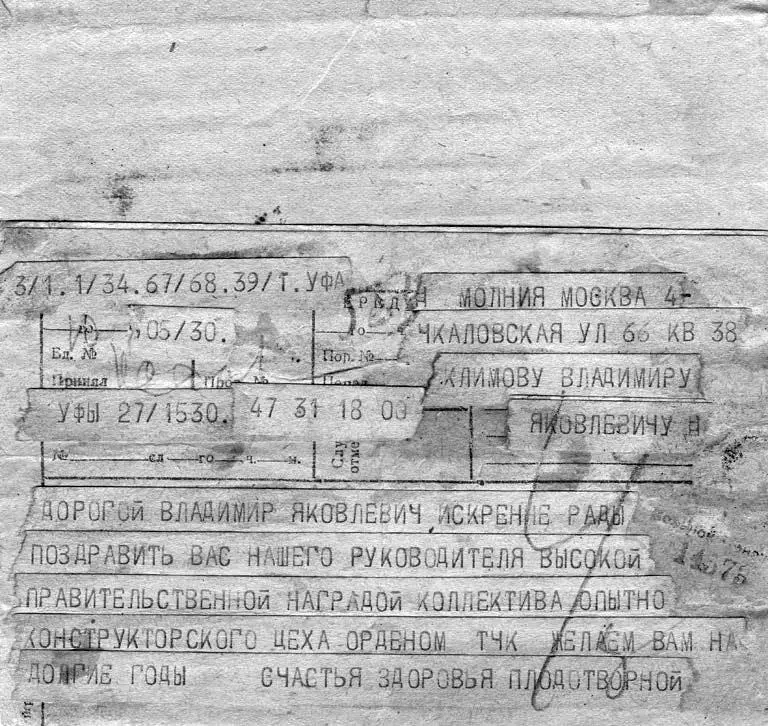 3/1.1/34.67/68.39/Т.УФА
МОЛНИЯ МОСКВА 4-
05/30.
ЧКАЛОВСКАЯ УЛ 66 КВ 38
Бл. №
Пор. №
Принял
КЛИМОВУ ВЛАДИМИРУ
УФЫ 27/1530. 47 31 18 00
ЯКОВЛЕВИЧУ Н
№ сл го ч. м.
ДОРОГОЙ ВЛАДИМИР ЯКОВЛЕВИЧ ИСКРЕНЕ РАДЫ
ПОЗДРАВИТЬ ВАС НАШЕГО РУКОВОДИТЕЛЯ ВЫСОКОЙ
ПРАВИТЕЛЬСТВЕННОЙ НАГРАДОЙ КОЛЛЕКТИВА ОПЫТНО
КОНСТРУКТОРСКОГО ЦЕХА ОРДЕНОМ ТЧК ЖЕЛАЕМ ВАМ НА
ДОЛГИЕ ГОДЫ СЧАСТЬЯ ЗДОРОВЬЯ ПЛОДОТВОРНОЙ